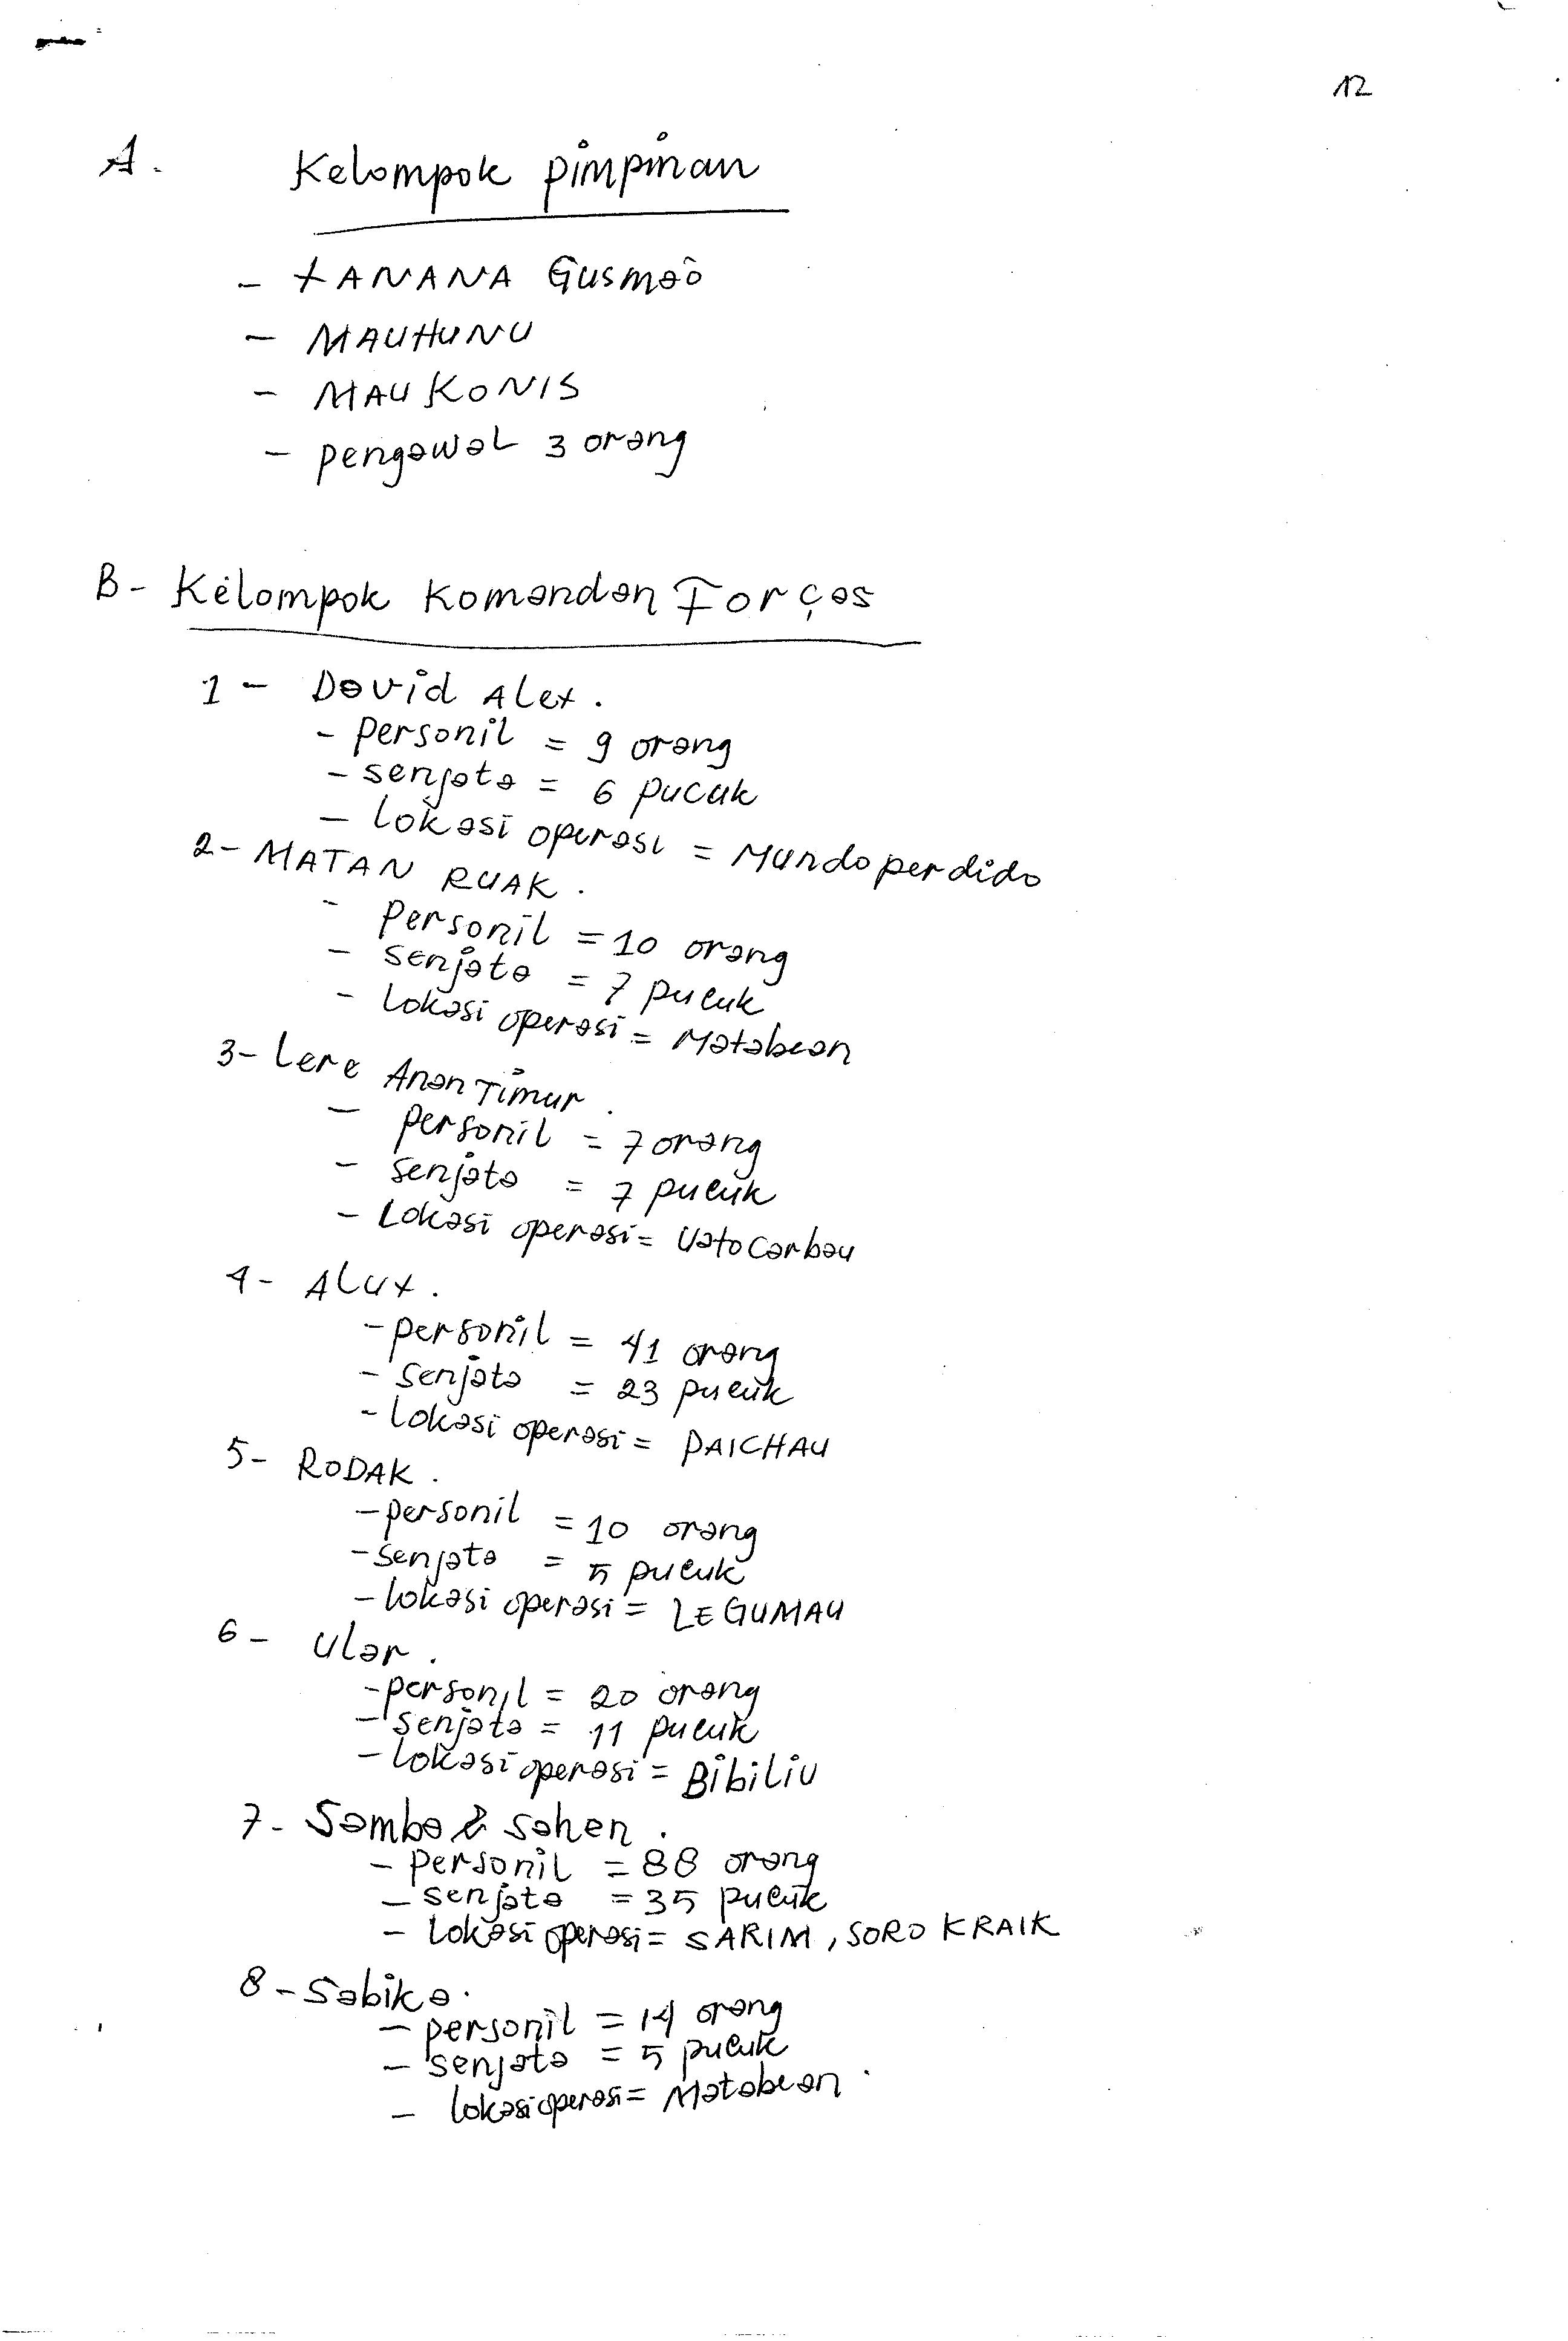 12
A. Kelompok pimpinan
- XANANA Gusmaõ
- MAUHUNU
- MAU KONIS
- pengawal 3 orang
B- Kelompok Komandan Forças
1- David Alex.
- personil = 9 orang
- senjata = 6 pucuk
- lokasi operasi = Mundo perdido
2- MATAN RUAK.
- personil = 10 orang
- senjata = 7 pucuk
- lokasi operasi = Matabean
3- Lere Anan Timur.
- personil = 7 orang
- senjata = 7 pucuk
- Lokasi operasi = Uato Carbau
4- ALUX.
- personil = 41 orang
- senjata = 23 pucuk
- lokasi operasi = PAICHAU
5- RODAK.
- personil = 10 orang
- senjata = 5 pucuk
- lokasi operasi = LEGUMAU
6- Ular.
- personil = 20 orang
- senjata = 11 pucuk
- lokasi operasi = Bibiliu
7- Samba & sahen.
- personil = 88 orang
- senjata = 35 pucuk
- lokasi operasi = SARIM, SORO KRAIK
8- Sabika.
- personil = 14 orang
- senjata = 5 pucuk
- lokasi operasi = Matabean.